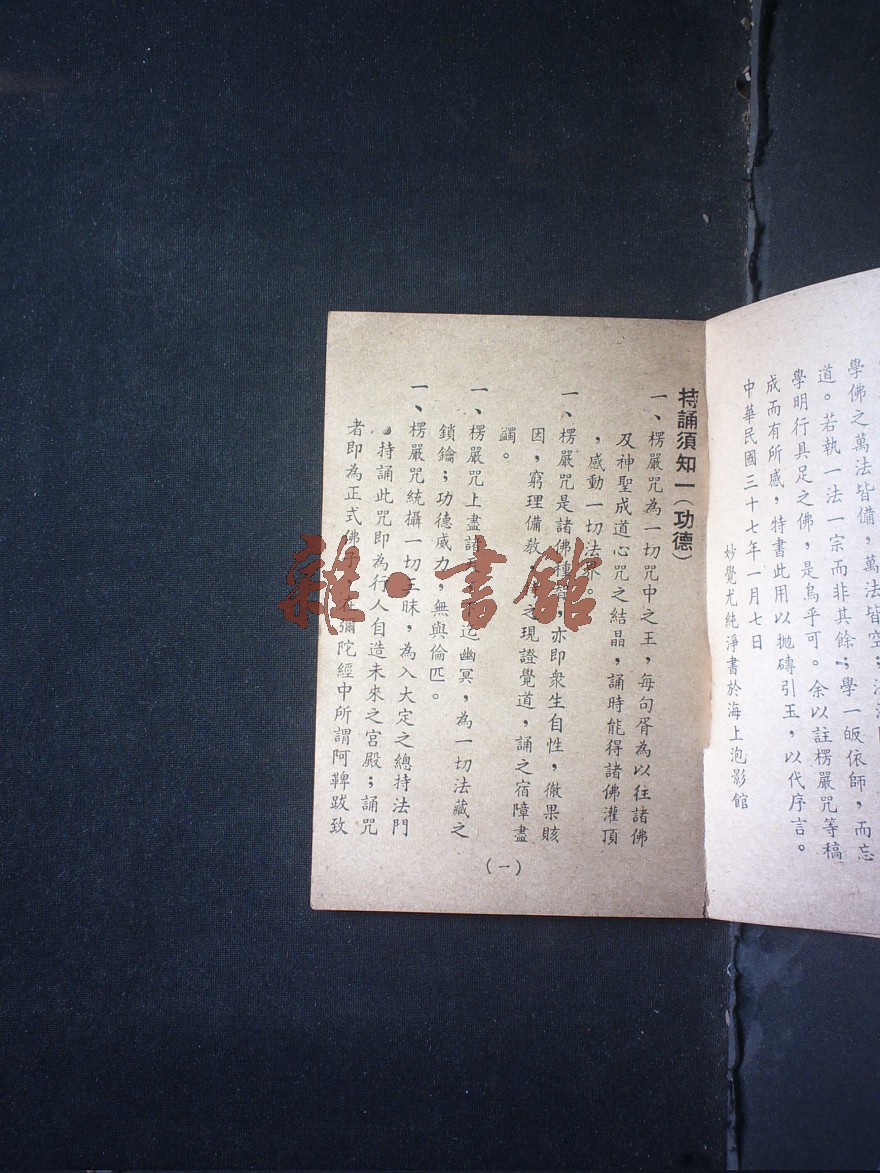 學佛之萬法皆備，萬法皆空；法
道。若執一法一宗而非其餘；學一皈依師，而忘
學明行具足之佛，是烏乎可。余以註楞嚴咒等稿
成而有所感，特書此用以拋磚引玉，以代序言。
中華民國三十七年一月七日
妙覺尤純淨書於海上泡影館
持誦須知一（功德）
一、楞嚴咒為一切咒中之王，每句胥為以往諸佛
及神聖成道心咒之結晶，誦時能得諸佛灌頂
，感動一切法界。
一、楞嚴咒是諸佛種智，亦即衆生自性，徹果賅
因，窮理備教，之現證覺道，誦之宿障盡
蠲。
一、楞嚴咒上盡諸迄幽冥，為一切法藏之
鎖鑰；功德威力，無與倫匹。
一、楞嚴咒統攝一切三昧，為入大定之總持法門
。持誦此咒即為行人自造未來之宮殿；誦咒
者即為正式佛彌陀經中所謂阿鞞跋致
（一）
雜·書館